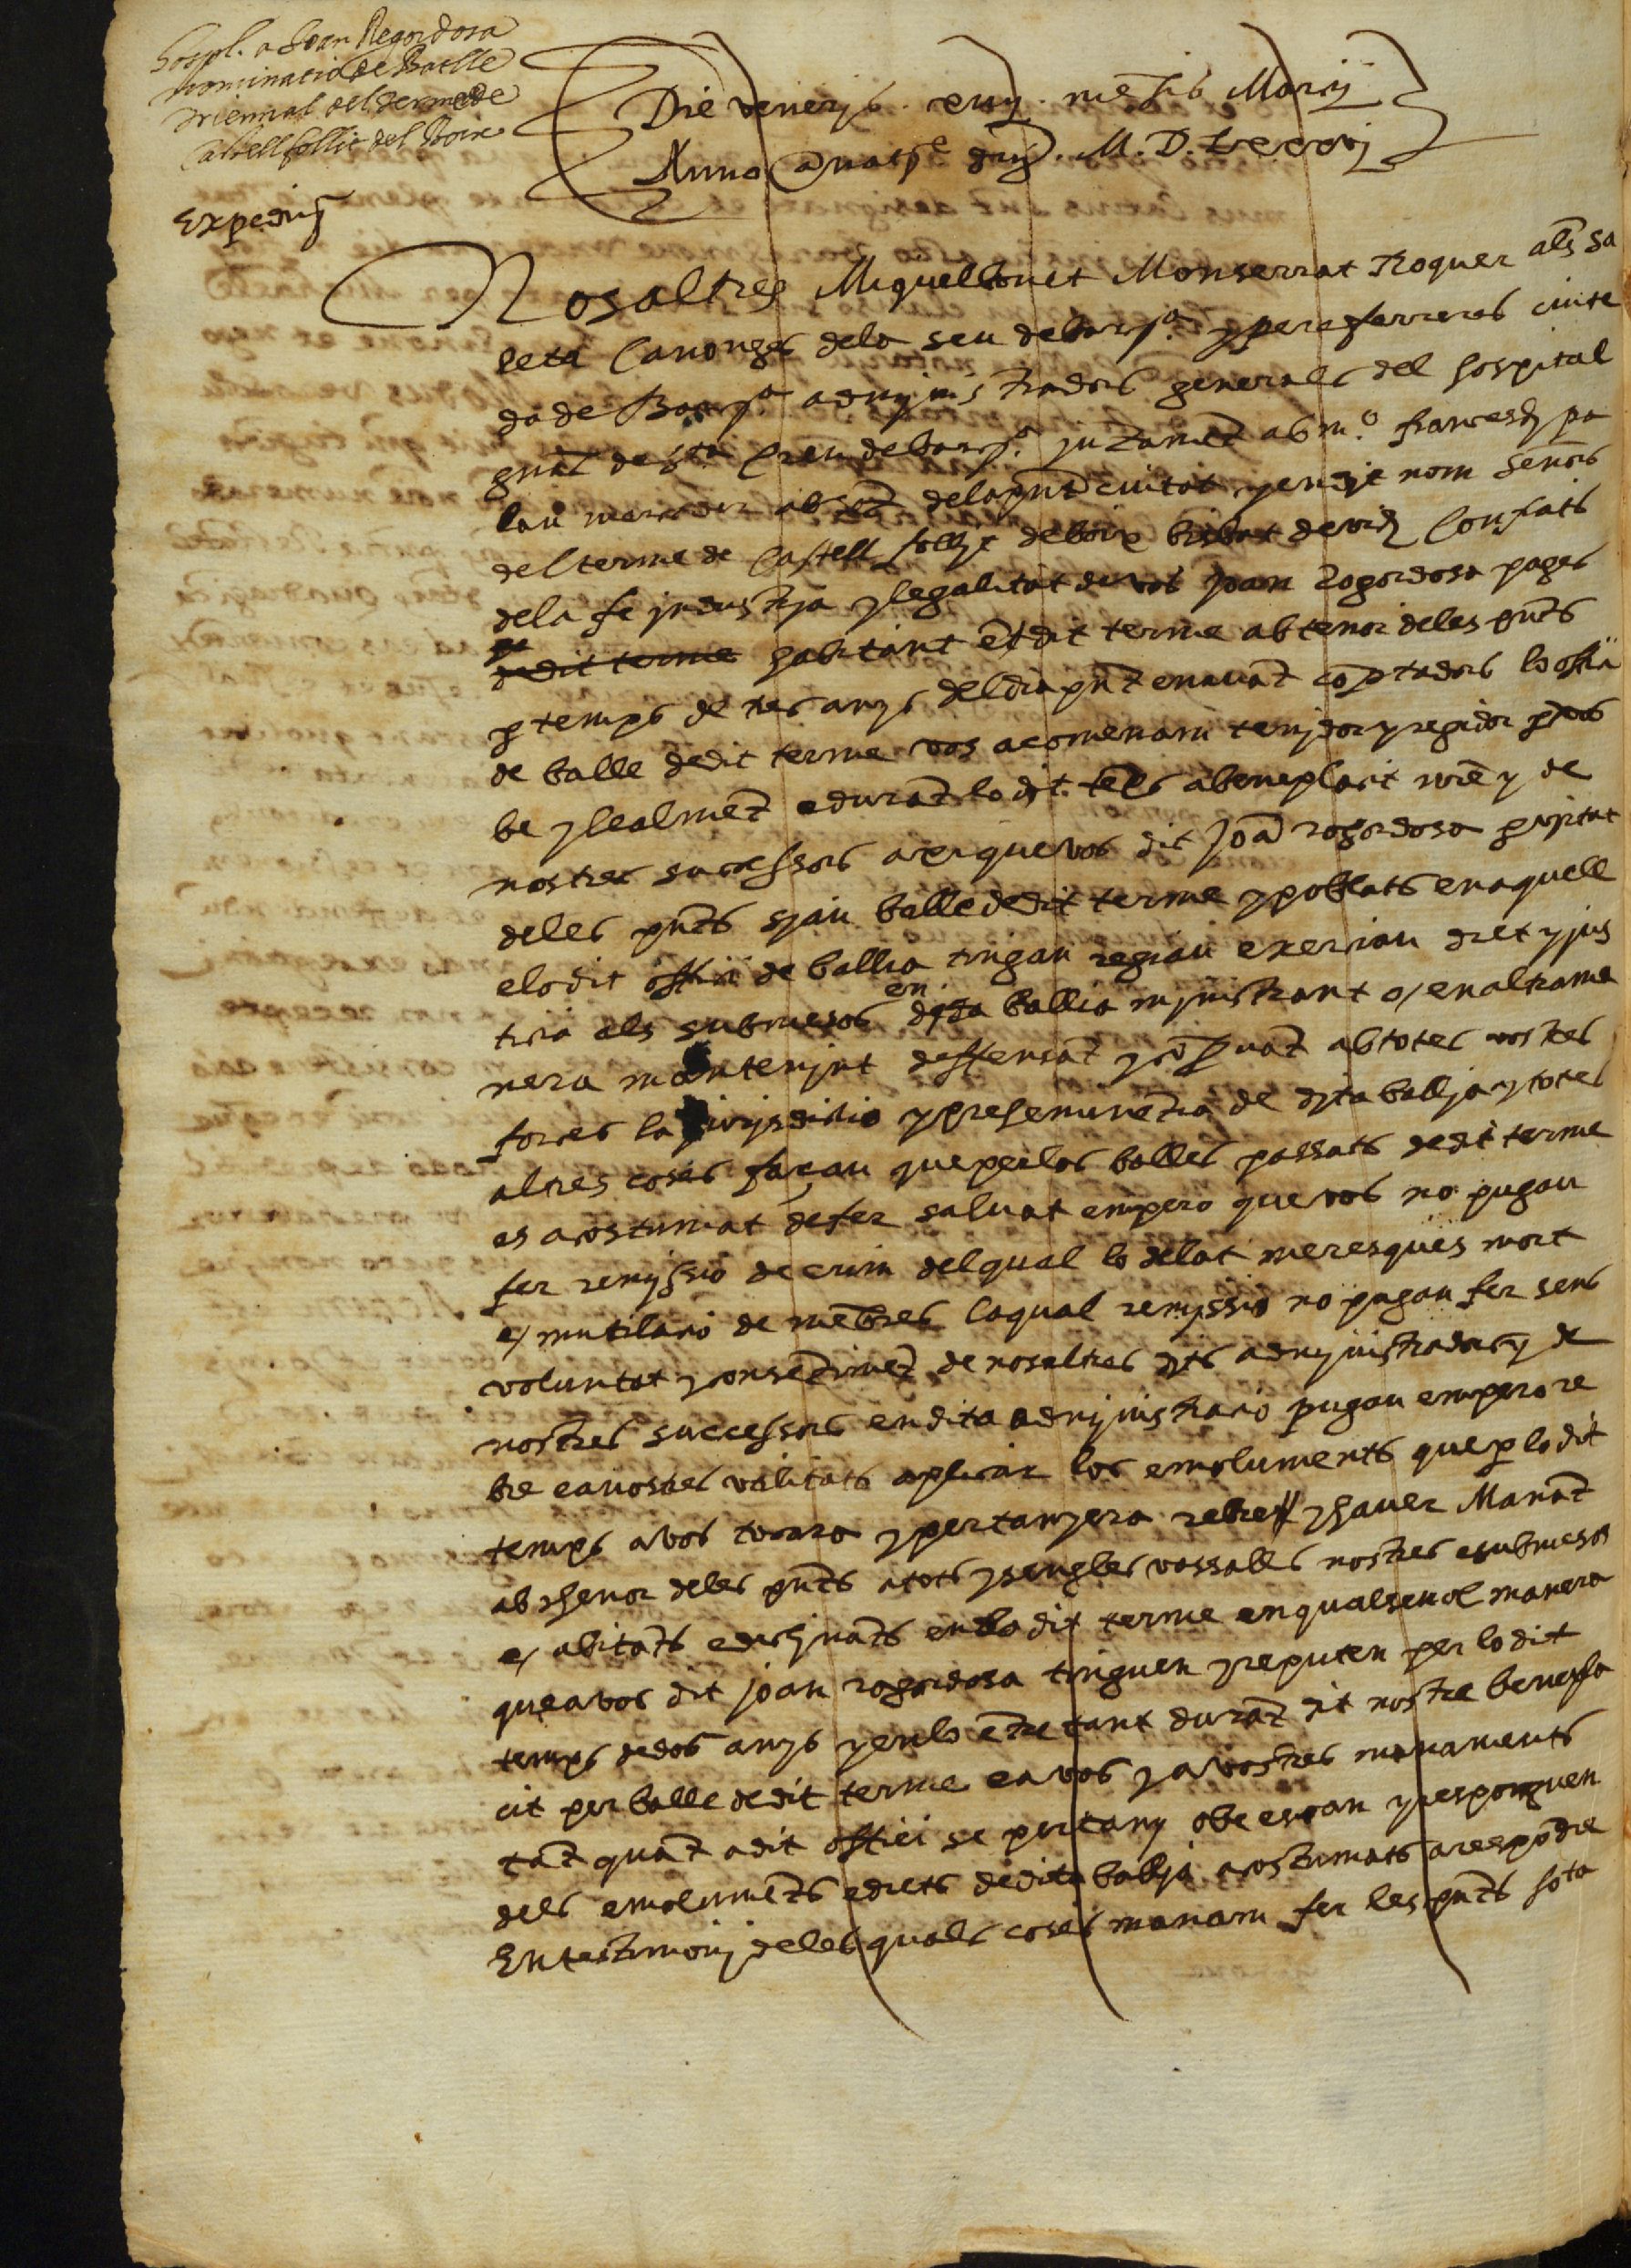 Hospl. a Joan Regordosa
nominatio de Batlle
Triennal del terme de
Castellfollit del Boix
Expedits
Die veneris . mensis Marcii
Anno a nate dni . M. D. Lxxxvi
Nosaltres Miquel Bonet Monserrat Roquer als Sa
leta Canonges dela Seu de barña y pere ferreres ciute
da de Barña administradors generals del hospital
gnal de sta Creu de barña juntament ab mº francesch pa
lau mercader absent dela pnt ciutat y en dit nom senors
del terme de Castell follit de boix bisbat de vich Confiats
dela fe industria y legalitat de vos joan rogordosa pages
de dit terme habitant en dit terme ab tenor deles pnts
p temps de tres anys del dia pnt enavant comptadors lo offici
de balle de dit terme vos acomenam tenidor y regidor p vos
be y lealment e durant lo dit temps a beneplacit nre y de
nostres successors axi que vos dit Joan rogordosa p virtut
deles pnts siau balle de dit terme y poblats en aquell
e lo dit offici de ballia tingau regiau exerciau dret y jus
ticia als submesos en dita ballia ministrant o/ en altra ma
nera mantenint deffensant y conservant ab totes vostres
forces la jurisdictio y preheminentia de dita ballia y totes
altres coses façau que per los balles passats de dit terme
es acostumat de fer salvat empero que vos no pugau
fer remissio de crim del qual lo delat meresques mort
o/ mutilacio de membres la qual remissio no pugau fer sens
voluntat y consentiment de nosaltres dits administradors y de
nostres successors en dita administracio pugau empero re
bre e a vostres utilitats aplicar los emoluments que p lo dit
temps a vos tocara y pertanyera rebre y haver Manant
ab thenor deles pnts a tots y sengles vassalls nostres e submesos
o/ abitants e declinants en lo dit terme en qualsevol manera
que a vos dit joan rogordosa tinguen y reputen per lo dit
temps de dos anys y en lo entretant durant dit nostre benepla
cit per balle de dit terme e a vos y a vostres manaments
tant quant a dit offici se pertany obeescan y responguen
dels emoluments e drets de dita ballia acostumats a respondre
En testimoni deles quals coses manam fer les pnts sota